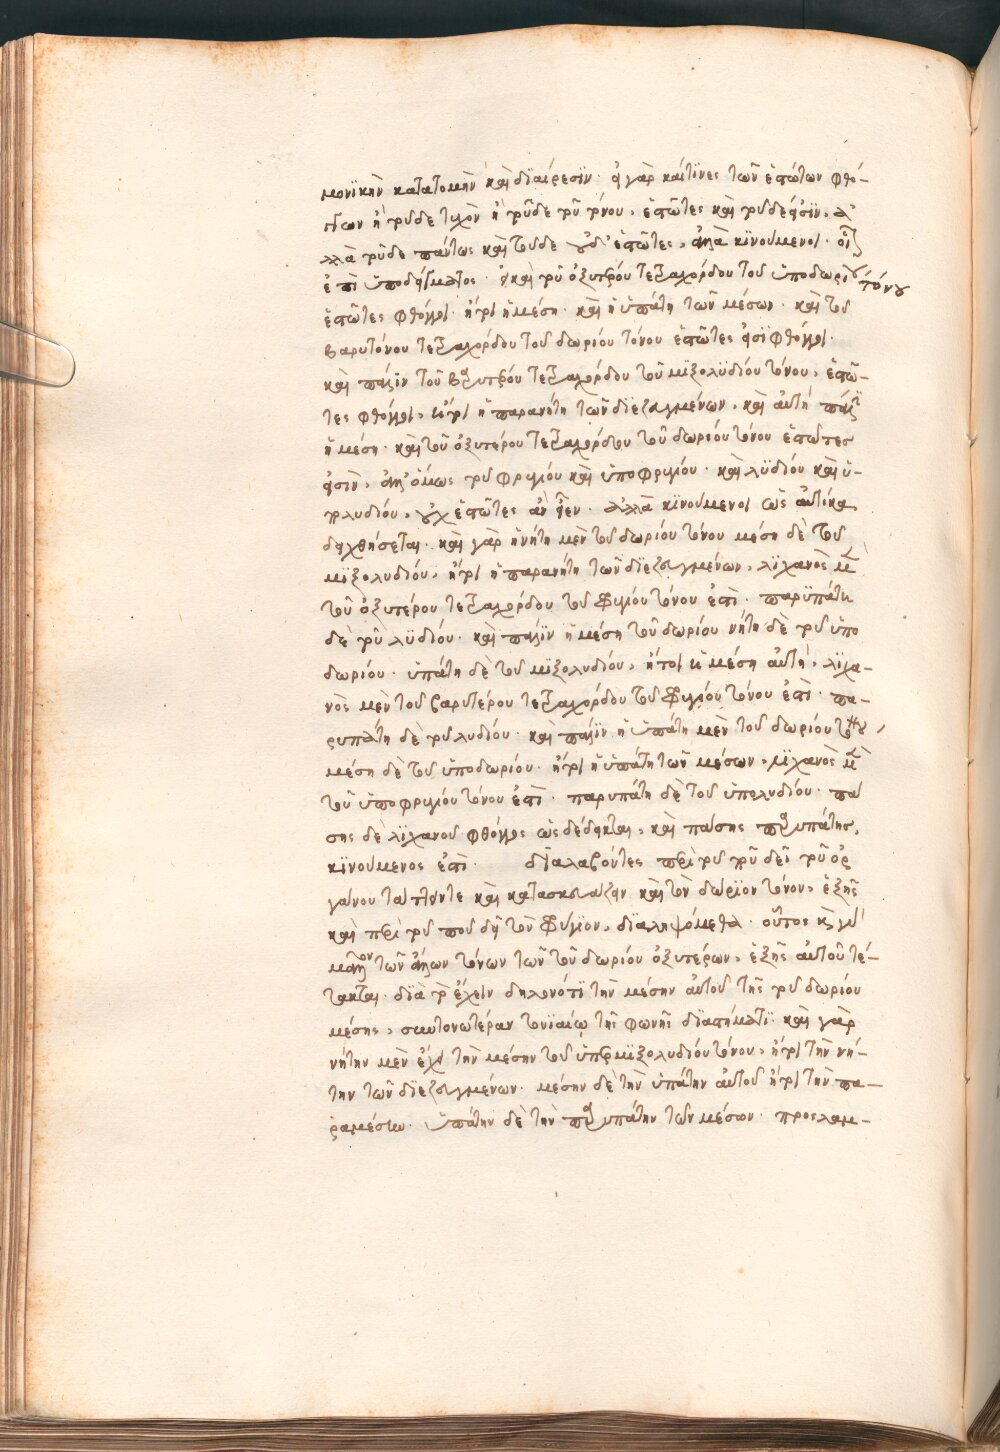 μονϊκὴν κατατομὴν καὶ διαίρεσϊν· εἰ γὰρ καίτινες τῶν ἑστώτων φθό-
γγων ἢ τοῦδε τυχὸν ἢ τοῦδε τοῦ τόνου, ἑστῶτες καὶ τοῦδε εἰσϊν, ἀ
λλὰ τοῦδε πάντως καὶ τοῦδε οὐδ' ἑστῶτες, ἀλλὰ κϊνούμενοι· οἷον
ἐπὶ ὑποδείγματος· εἰ καὶ τοῦ ὀξυτέρου τετραχόρδου τοῦ ὑποδωρίου τόνου
ἑστῶτες φθόγγοι· ἤτοι ἡ μέση· καὶ ἡ ὑπάτη τῶν μέσων· καὶ τοῦ
βαρυτόνου τετραχόρδου τοῦ δωρίου τόνου ἑστῶτες εἰσϊ φθόγγοι·
καὶ πάλϊν τοῦ βαρυτέρου τετραχόρδου τοῦ μϊξολϋδίου τόνου, ἑστῶ-
τες φθόγγοι, ἤτοι ἡ παρανήτη τῶν διεζευγμένων, καὶ αὐτὴ πάλϊν
ἡ μέση· καὶ τοῦ ὀξυτέρου τετραχόρδου τοῦ δωρίου τόνου ἑστῶτες
εἰσὶν, ἀλλ' ὅμως τοῦ φρυγίου καὶ ὑποφρυγίου· καὶ λϋδίου καὶ ὑ-
πολυδίου, οὐχ ἑστῶτες ἂν εἶεν· ἀλλὰ κϊνούμενοι ὡς αὐτίκα
δειχθήσεται· καὶ γὰρ ἡ νήτη μὲν τοῦ δωρίου τόνου μέση δὲ τοῦ
μϊξολυδίου, ἤτοι ἡ παρανήτη τῶν διεζευγμένων, λϊχανὸς μὲν
τοῦ ὀξυτέρου τετραχόρδου τοῦ φρυγίου τόνου ἐστὶ· παρϋπάτη
δὲ τοῦ λϋδίου· καὶ πάλϊν ἡ μέση τοῦ δωρίου νήτη δὲ τοῦ ὑπο
δωρίου· ὑπάτη δὲ τοῦ μιξολυδίου, ἤτοι ἡ μέση αὐτὴ, λϊχα-
νὸς μὲν τοῦ βαρυτέρου τετραχόρδου τοῦ φρυγίου τόνου ἐστὶ· πα-
ρυπάτη δὲ τοῦ λυδίου· καὶ πάλϊν ἡ ὑπάτη μὲν τοῦ δωρίου τόνου,
μέση δὲ τοῦ ὑποδωρίου· ἤτοι ἡ ὑπάτη τῶν μέσων, λϊχανὸς μὲν
τοῦ ὑποφρυγίου τόνου ἐστὶ· παρυπάτη δὲ τοῦ ὑπολυδίου· πα
σης δὲ λϊχανοῦ φθόγγος ὡς δέδεικται, καὶ πάσης παρυπάτης,
κϊνούμενος ἐστὶ· διαλαβόντες περὶ τοῦ πῶς δεῖ τοῦ ὀρ
γάνου τάττοντα καὶ κατασκευάζειν καὶ τὸν δώρϊον τόνον, ἑξῆς
καὶ περὶ τοῦ πῶς δεῖ τὸν φρύγϊον, διαληψόμεθα· οὗτος καὶ γὰρ
μᾶλλον τῶν ἄλλων τόνων τῶν τοῦ δωρίου ὀξυτέρων, ἑξῆς αὐτοῦ τέ-
τακται· διὰ τὸ ἔχειν δηλονότϊ τὴν μέσην αὐτοῦ τῆς τοῦ δωρίου
μέσης, συντονωτέραν τονϊαίῳ τῆς φωνῆς διαστήματϊ· καὶ γὰρ
νήτην μὲν ἔχει τὴν μέσην τοῦ ὑπερμϊξολυδίου τόνου, ἤτοι τὴν νή-
την τῶν διεζευγμένων· μέσην δὲ τὴν ὑπάτην αὐτοῦ ἤτοι τὴν πα-
ραμέσην· ὑπάτην δὲ τὴν παρυπάτην τῶν μέσων· προσλαμ-